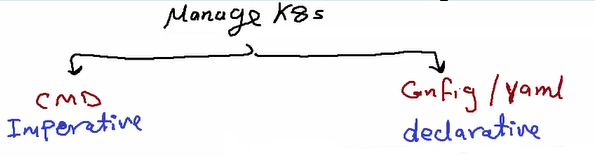 Manage K8s
CMD
Imperative
Config / Yaml
declarative